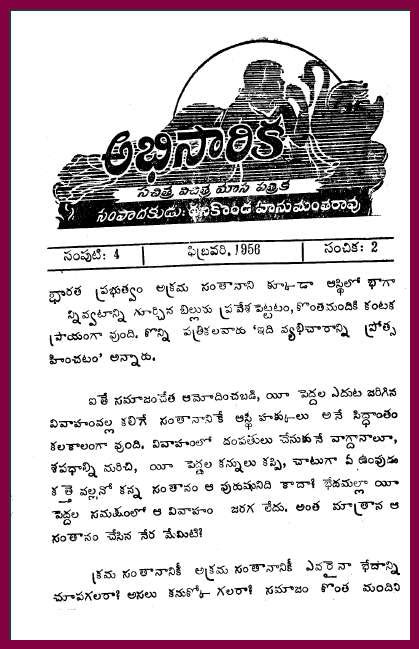 అభిసారిక
సచిత్ర విచిత్ర మాస పత్రిక
సంపాదకుడు: ధనికొండ హనుమంతరావు
సంపుటి: 4 ఫిబ్రవరి, 1956 సంచిక: 2
భారత ప్రభుత్వం అక్రమ సంతానాని కూడా ఆస్తిలో భాగా
న్నివ్వటాన్ని గూర్చిన బిల్లును ప్రవేశపెట్టటం, కొంతమందికి కంటక
ప్రాయంగా వుంది. కొన్ని పత్రికలవారు 'ఇది వ్యభిచారాన్ని ప్రోత్స
హించటం' అన్నారు.
ఐతే సమాజంచేత ఆమోదించబడి, యీ పెద్దల ఎదుట జరిగిన
వివాహంవల్ల కలిగే సంతానానికే ఆస్థి హక్కులు అనే సిద్ధాంతం
కలకాలంగా వుంది. వివాహంలో దంపతులు చేసుకునే వాగ్దానాలూ,
శపథాల్ని మరిచి, యీ పెద్దల కన్నులు కప్పి, చాటుగా ఏ ఉంపుడు
కత్తె వల్లనో కన్న సంతానం ఆ పురుషునిది కాదా? భేదమల్లా యీ
పెద్దల సమక్షంలో ఆ వివాహం జరగ లేదు. అంత మాత్రాన ఆ
సంతానం చేసిన నేర మేమిటి?
క్రమ సంతానానికీ అక్రమ సంతానానికీ ఎవరైనా భేదాన్ని
చూపగలరా? అసలు కనుక్కో గలరా? సమాజం కొంత మందిని